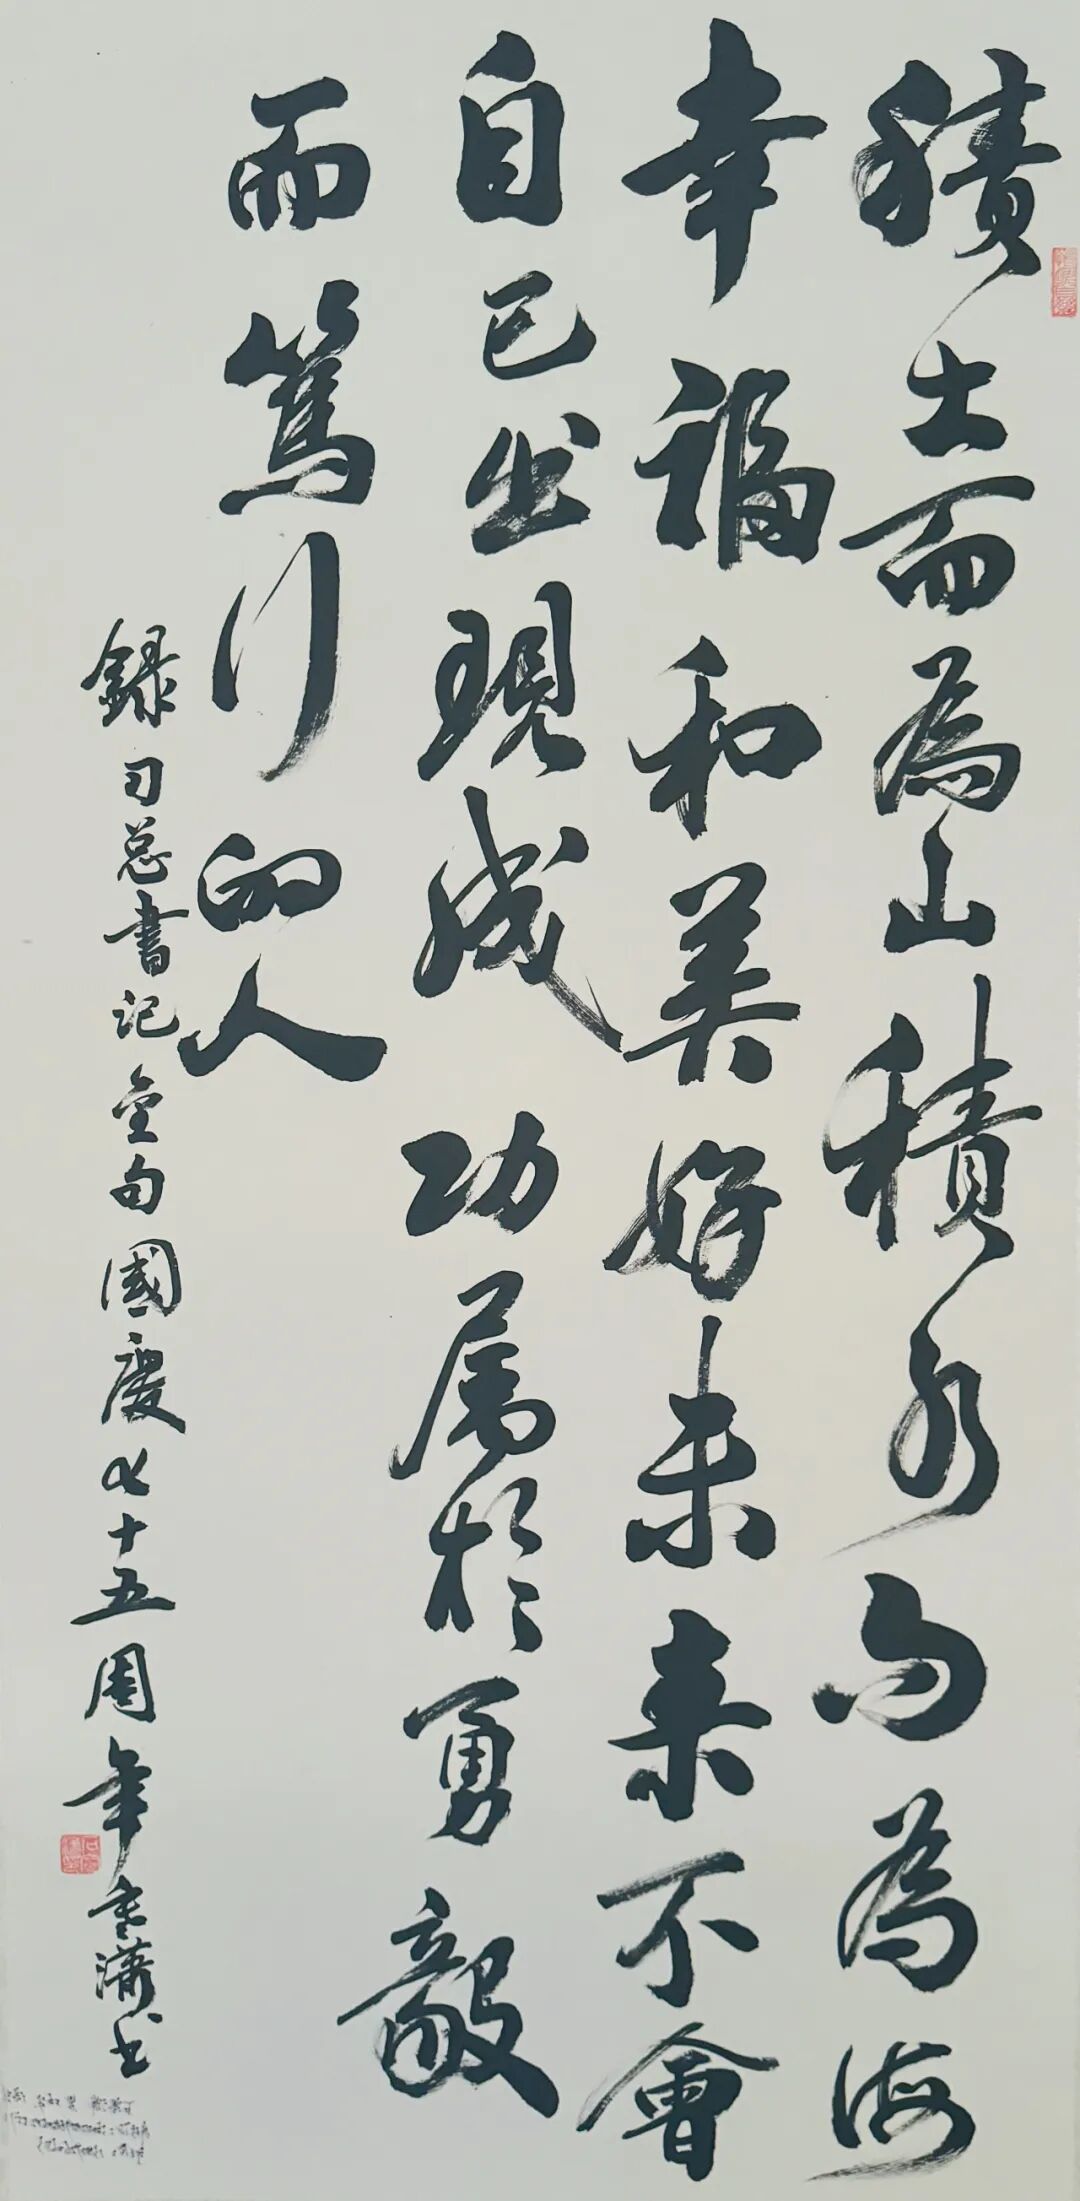 積土而為山積水而為海
幸福和美好未来不會
自己出現成功属於勇毅
而篤行的人
録习总書记金句國慶七十五周年潇书